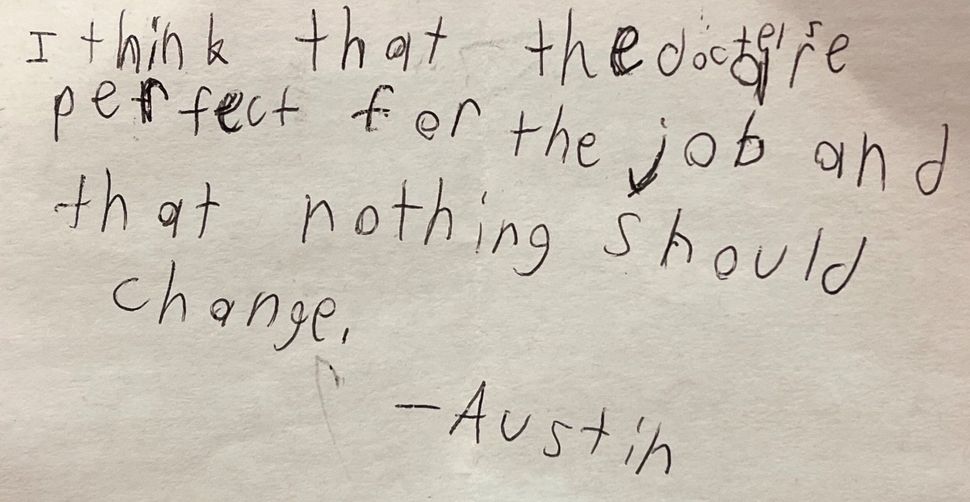 I think that the doctors're
perfect for the job and
that nothing should
change.
-Austin